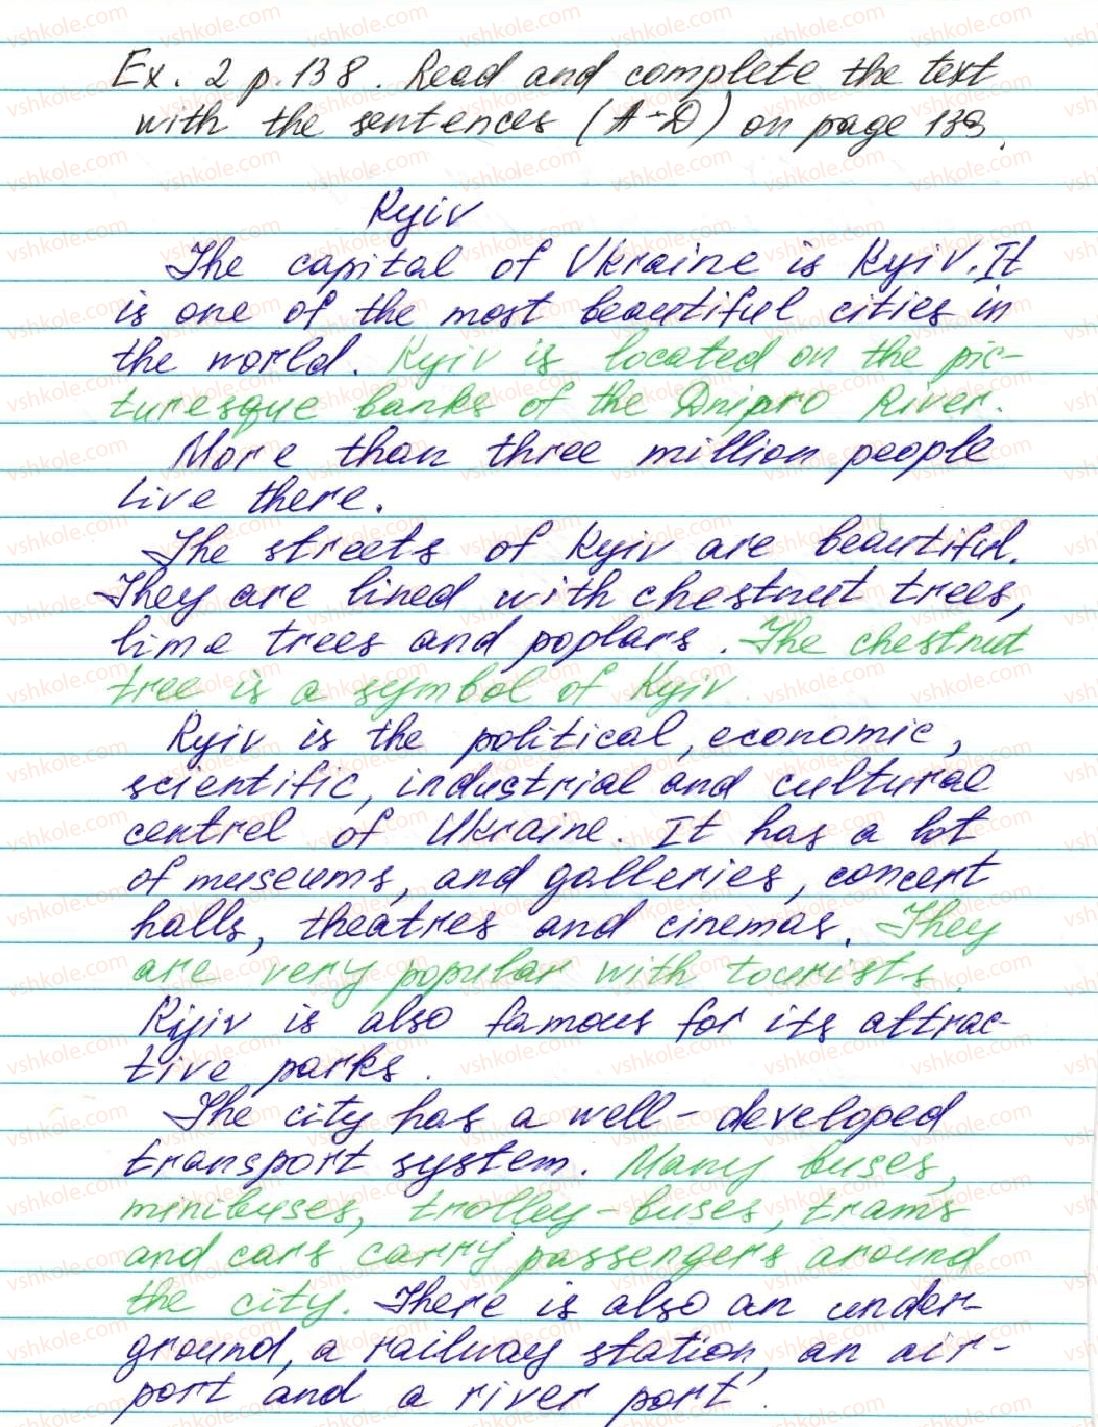 Ex. 2 p. 138. Read and complete the text
with the sentences (A-D) on page 139.
Kyiv
The capital of Ukraine is Kyiv. It
is one of the most beautiful cities in
the world. Kyiv is located on the pic-
turesque banks of the Dnipro River.
More than three million people
live there.
The streets of Kyiv are beautiful.
They are lined with chestnut trees,
lime trees and poplars. The chestnut
tree is a symbol of Kyiv.
Kyiv is the political, economic,
scientific, industrial and cultural
centrel of Ukraine. It has a lot
of museums, and galleries, concert
halls, theatres and cinemas. They
are very popular with tourists.
Kyiv is also famous for its attrac-
tive parks.
The city has a well-developed
transport system. Many buses,
minibuses, trolley-buses, trams
and cars carry passengers around
the city. There is also an under-
ground, a railway station, an air-
port and a river port.